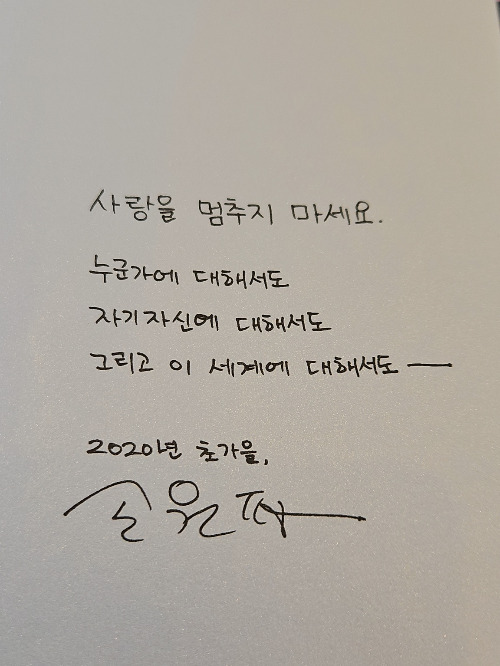 사랑을 멈추지 마세요.
누군가에 대해서도
자기자신에 대해서도
그리고 이 세계에 대해서도 —
2020년 초가을,
손원평